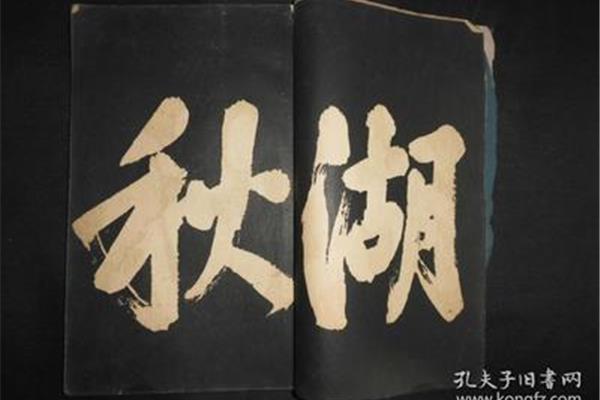 湖秋
孔夫子旧书网
www.kongfz.com